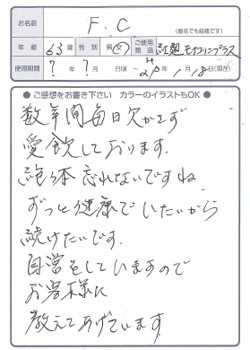 お名前 F.C (匿名でも結構です)
年齢 63歳 性別 男・女 ご使用商品 紅麹モナコリンプラス
使用期間 ?年 ?月 日頃 ~ H20/1/18日(現在)
●ご感想をお書き下さい カラーのイラストもOK●
数年間毎日欠かさず
愛飲しております。
絶対忘れないですね
ずっと健康でいたいから
続けたいです。
自営をしていますので
お客様に
教えてあげています